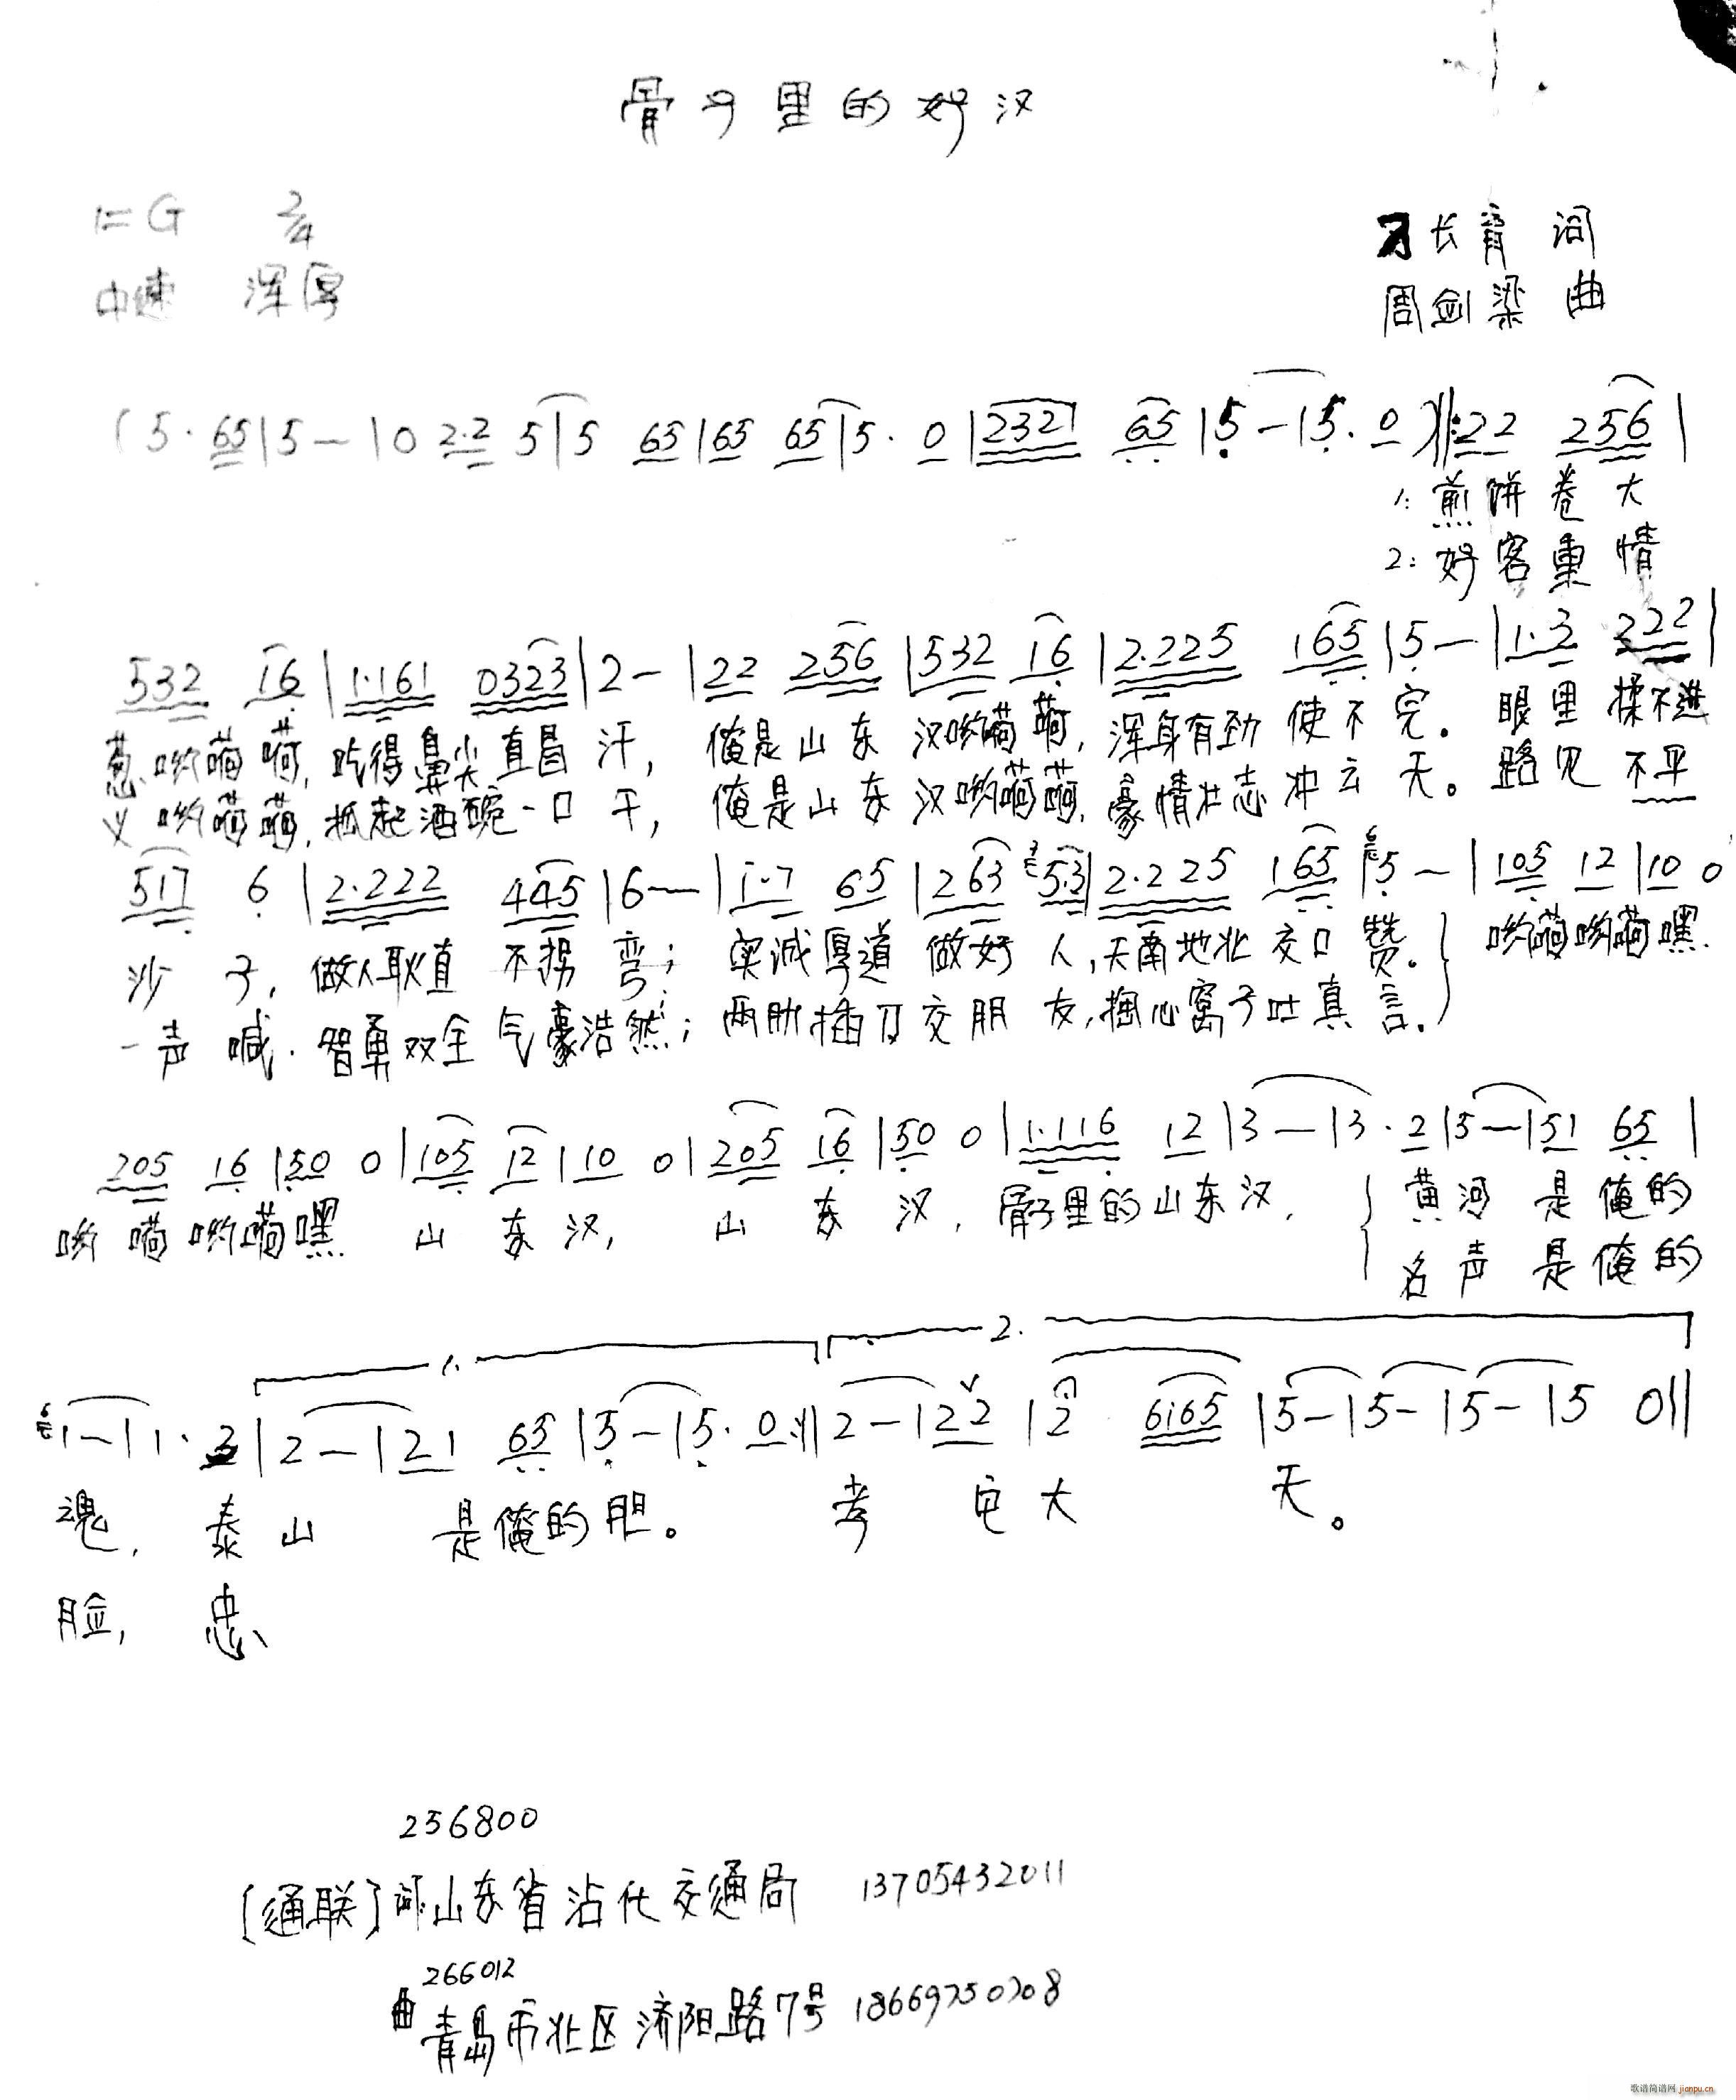 骨子里的好汉
1=G 2/4
长育 词
中速 浑厚
周剑梁 曲
(5· 65|5—|0 2·2 5|5 65|65 65|5· 0|2321 65|5—|5· 0)‖:22 256|
1: 煎饼卷大
2: 好客重情
532 16|1·161 0323|2—|22 256|532 16|2·225 165|5—|1·2 222|
葱哟嗬嗬, 吃得鼻尖直冒汗, 俺是山东汉哟嗬嗬, 浑身有劲使不完。眼里揉不进
义哟嗬嗬, 抓起酒碗一口干, 俺是山东汉哟嗬嗬, 豪情壮志冲云天。路见不平
517 6|2·222 445|6—|1·7 65|263 53|2·225 165|5—|105 12|10 0
沙子, 做人耿直不拐弯; 实诚厚道做好人,天南地北交口赞。} 哟嗬哟嗬嘿
一声喊. 智勇双全气豪浩然; 两肋插刀交朋友,掏心窝子吐真言.
205 16|50 0|105 12|10 0|205 16|50 0|1·116 12|3—|3·2|5—|51 65|
哟嗬哟嗬嘿 山东汉, 山东汉, 骨子里的山东汉, { 黄河是俺的
名声是俺的
1. 2.
1—|1·3|2—|21 65|5—|5· 0:‖2—|22|2 6165|5—|5—|5—|5 0‖
魂, 泰山 是俺的胆。 孝 在大 天。
脸, 忠、
256800
[通联]词山东省沾化交通局 13705432011
266012
曲 青岛市北区济阳路7号 18669750708
歌谱简谱网 jianpu.cn